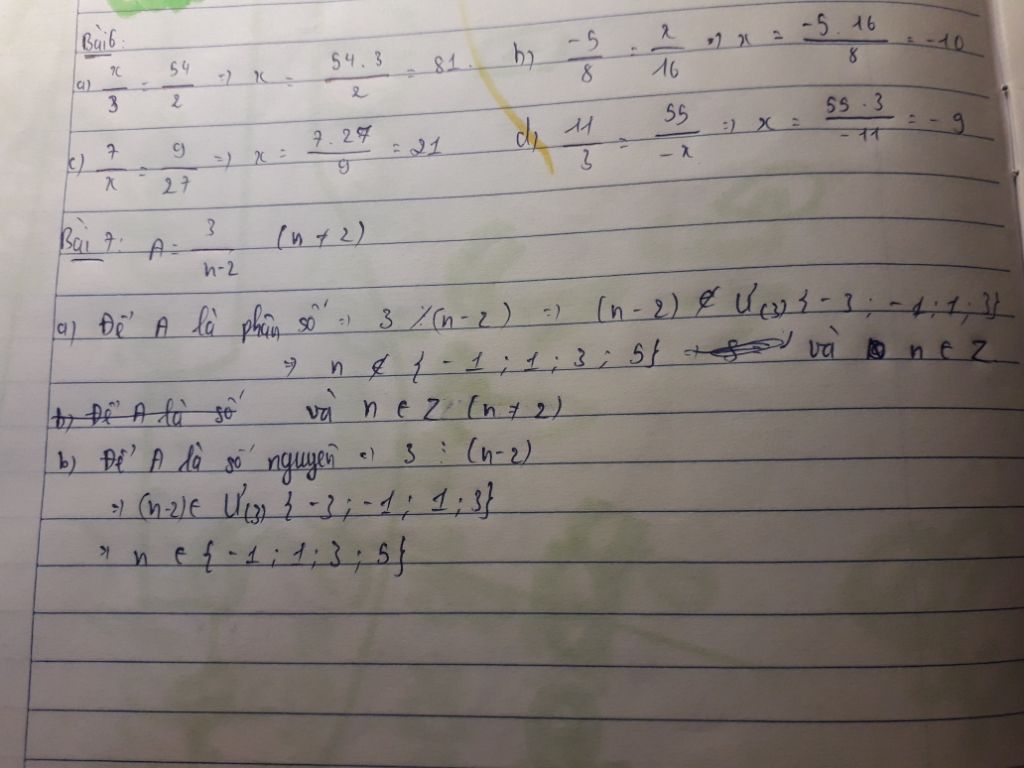 Bài 6:
a) x/3 = 54/2 => x = 54.3/2 = 81. b) -5/8 = x/16 => x = -5.16/8 = -10
c) 7/x = 9/27 => x = 7.27/9 = 21 d) 11/3 = 55/-x => x = 55.3/-11 = -9
Bài 7: A = 3/n-2 (n ≠ 2)
a) Để A là phân số => 3 ⋮̸ (n-2) => (n-2) ∉ Ư(3) {-3; -1; 1; 3}
=> n ∉ {-1; 1; 3; 5} và n ∈ Z
b) Để A là số và n ∈ Z (n ≠ 2)
b) Để A là số nguyên => 3 ⋮ (n-2)
=> (n-2) ∈ Ư(3) {-3; -1; 1; 3}
=> n ∈ {-1; 1; 3; 5}